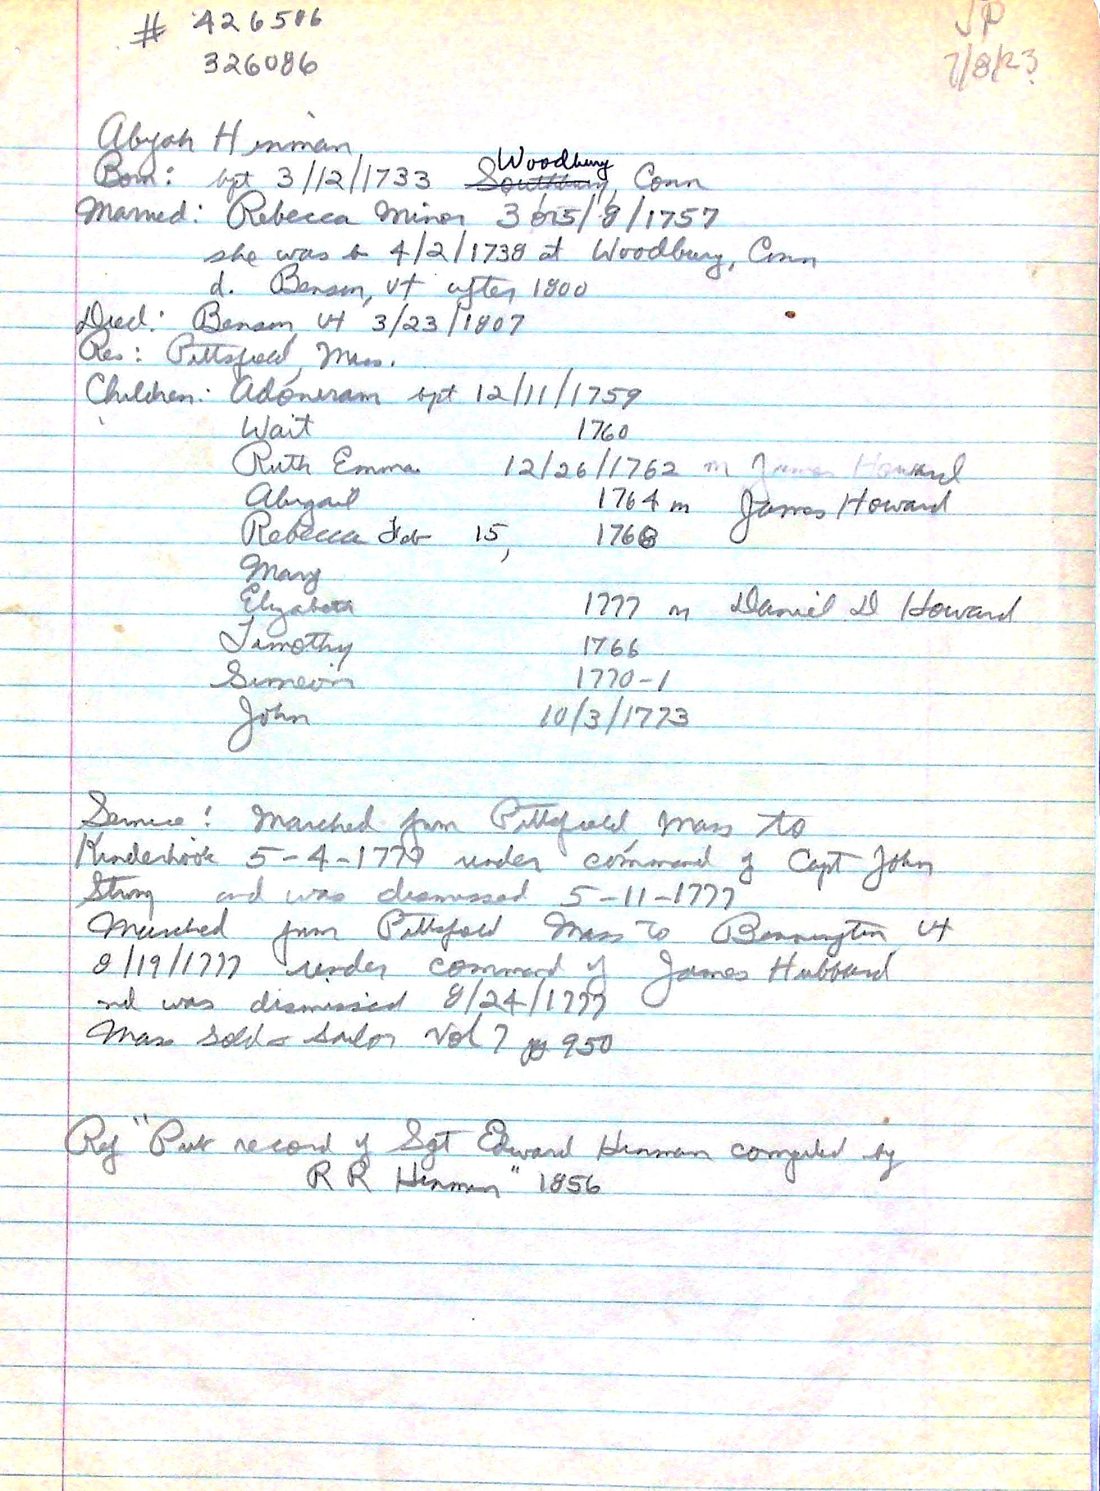 # 426506
326086
JP
7/8/23
Abijah Hinman
Born: bpt 3/12/1733 Southbury, Woodbury Conn
Married: Rebecca Minor 3 or 5/8/1757
she was b 4/2/1738 at Woodbury, Conn
d. Benson, Vt after 1800
Died: Benson Vt 3/23/1807
Res: Pittsfield, Mass.
Children: Adoniram bpt 12/11/1759
Wait 1760
Ruth Emma 12/26/1762 m James Howard
Abigail 1764 m James Howard
Rebecca Feb 15, 1768
Mary
Elizabeth 1777 m Daniel D Howard
Timothy 1766
Simeon 1770-1
John 10/3/1773
Service: Marched from Pittsfield Mass to
Kinderhook 5-4-1777 under command of Capt John
Strong and was dismissed 5-11-1777
Marched from Pittsfield Mass to Bennington Vt
8/19/1777 under command of James Hubbard
and was dismissed 8/24/1777
Mass Sold & Sailor Vol 7 pg 950
Ref " record of Sgt Edward Hinman compiled by
R R Hinman" 1856